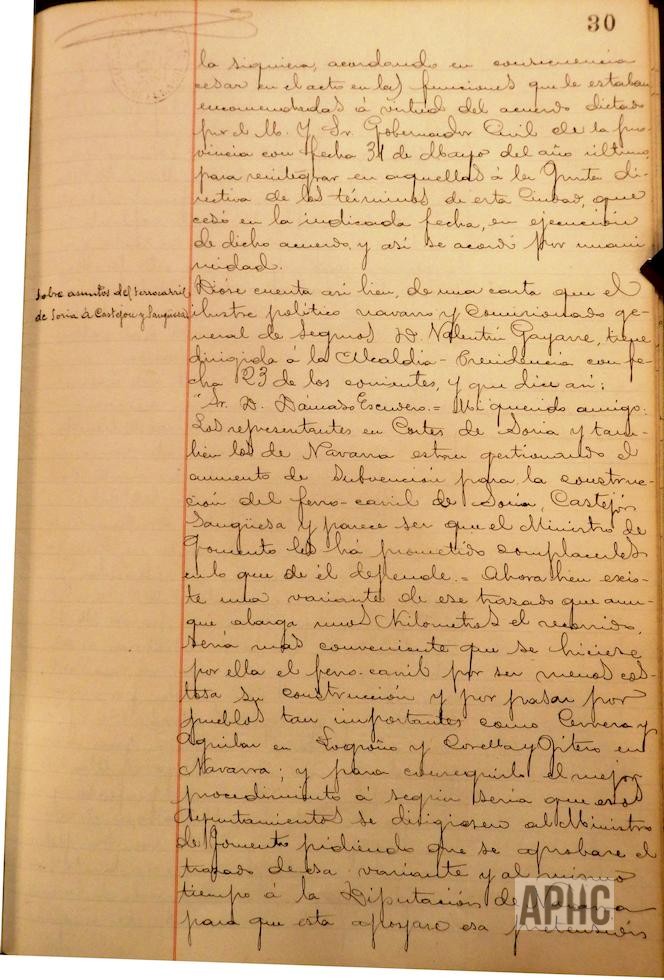 30
la siguiera, acordando en consecuencia
cesar en el acto en las funciones que le estaban
encomendadas á virtud del acuerdo dictado
por el M. Y. Sr. Gobernador Civil de la pro-
vincia con fecha 31 de Mayo del año último,
para reintegrar en aquellas á la Junta di-
rectiva de los términos de esta Ciudad, que
cesó en la indicada fecha, en ejecución
de dicho acuerdo, y así se acordó por unani
midad.
Sobre asuntos del ferrocarril
de Soria á Castejon y Sangüesa
Dióse cuenta asi bien, de una carta que el
ilustre político navarro y Comisionado ge-
neral de Seguros D. Valentín Gayarre, tiene
dirigida á la Alcaldía-Presidencia con fe-
cha 23 de los corrientes, y que dice así:
"Sr. D. Dámaso Escudero.= Mi querido amigo:
Los representantes en Cortes de Soria y tam-
bien los de Navarra estan gestionando el
aumento de Subvención para la construc-
ción del ferro-carril de Soria, Castejón
Sangüesa y parece ser que el Ministro de
Fomento les há prometido complacerles
en lo que de él depende.= Ahora bien exis-
te una variante de ese trazado que aun-
que alarga unos Kilometros el recorrido,
sería mas conveniente que se hiciese
por ella el ferro-carril por ser menos cos-
tosa su construcción y por pasar por
pueblos tan importantes como Cervera y
Aguilar en Logroño y Corella y Fitero en
Navarra; y para conseguirlo el mejor
procedimiento á seguir sería que esos
Ayuntamientos se dirigiesen al Ministro
de Fomento pidiendo que se aprobase el
trazado de esa variante y al mismo
tiempo á la Diputación de Navarra
para que esta apoyase esa pretensión
APHC